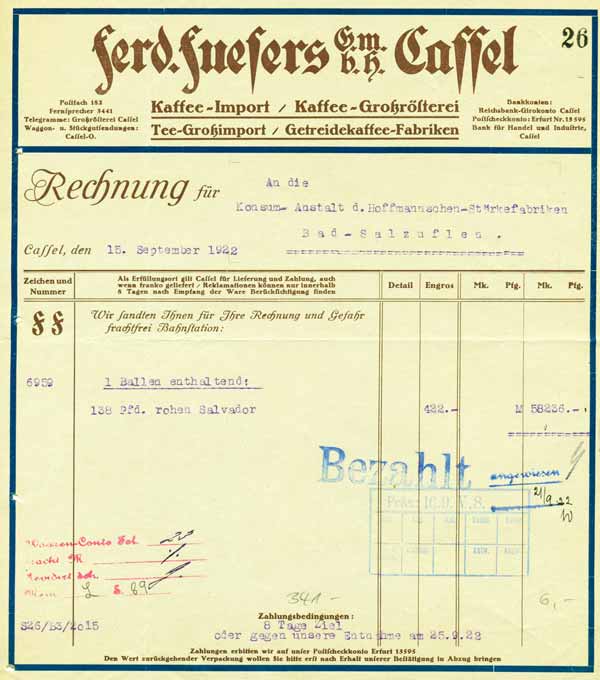 Ferd. Fuesers G.m.b.H. Cassel
26
Postfach 183
Fernsprecher 3441
Telegramme: Großrösterei Cassel
Waggon- u. Stückgutsendungen:
Cassel-O.
Kaffee-Import / Kaffee-Großrösterei
Tee-Großimport / Getreidekaffee-Fabriken
Bankkonten:
Reichsbank-Girokonto Cassel
Postscheckkonto: Erfurt Nr. 13595
Bank für Handel und Industrie,
Cassel
Rechnung für
An die
Konsum- Anstalt d. Hoffmannschen-Stärkefabriken
Bad-Salzuflen.
Cassel, den 15. September 1922
Zeichen und Nummer
Als Erfüllungsort gilt Cassel für Lieferung und Zahlung, auch
wenn franko geliefert / Reklamationen können nur innerhalb
8 Tagen nach Empfang der Ware Berücksichtigung finden
Detail Engros Mk. Pfg. Mk. Pfg.
FF
Wir sandten Ihnen für Ihre Rechnung und Gefahr
frachtfrei Bahnstation:
6959 1 Ballen enthaltend:
138 Pfd. rohen Salvador 422.- M 58236.-
Bezahlt
angewiesen
21/9 22
Waaren-Conto Fol.
S. 89
341 -
6,-
S26/B3/2o15
Zahlungsbedingungen:
8 Tage Ziel
oder gegen unsere Entnahme am 25.9.22
Zahlungen erbitten wir auf unser Postscheckkonto Erfurt 13595
Den Wert zurückgehender Verpackung wollen Sie bitte erst nach Erhalt unserer Bestätigung in Abzug bringen